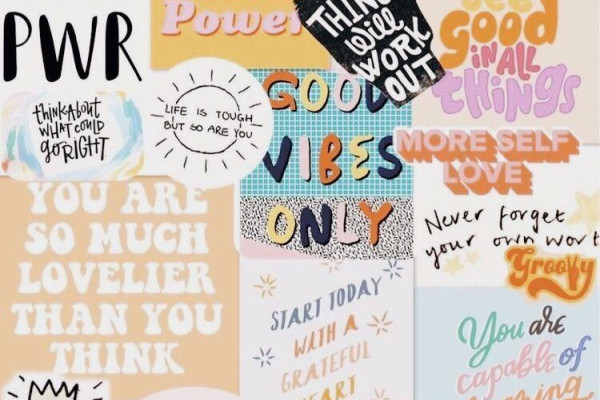 PWR
Power
THINGS
will
WORK
OUT
see
good
IN ALL
things
think about
WHAT COULD
go RIGHT.
LIFE IS TOUGH
BUT SO ARE YOU
GOOD
VIBES
ONLY
MORE SELF
LOVE
Never forget
your own wort
Groovy
YOU ARE
SO MUCH
LOVELIER
THAN YOU
THINK
START TODAY
WITH A
GRATEFUL
HEART
You are
capable of